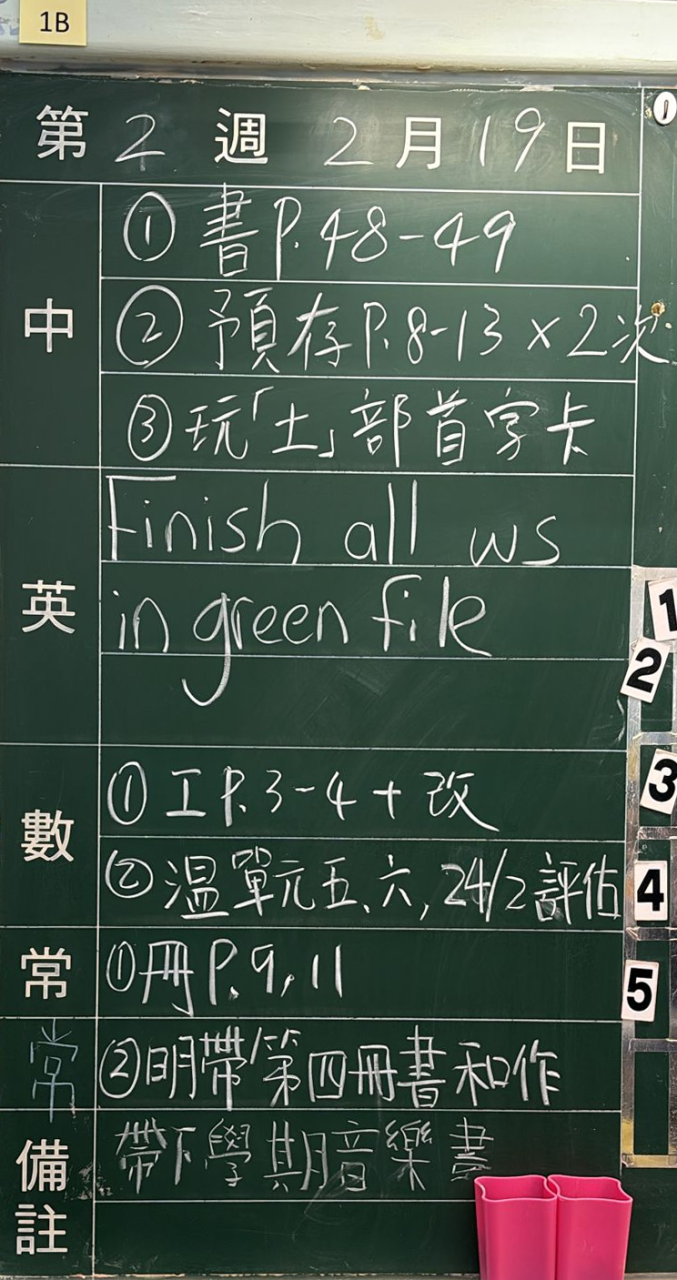 1B
第2週 2月19日
中
① 書P.48-49
② 預存P.8-13×2次
③ 玩「土」部首字卡
英
Finish all ws
in green file
數
① 工P.3-4+改
② 温單元五、六, 24/2評估
常
① 冊P.9, 11
常
② 明帶第四冊書和作
備註
帶下學期音樂書
1
1
2
3
4
5